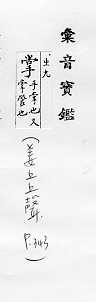 彙音寶鑑
出九
掌 手掌也又
掌管也
(姜上上聲)
P.343